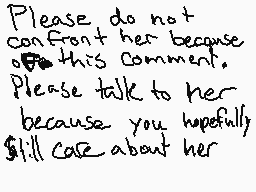 Please do not
confront her because
of this comment.
Please talk to her
because you hopefully
still care about her